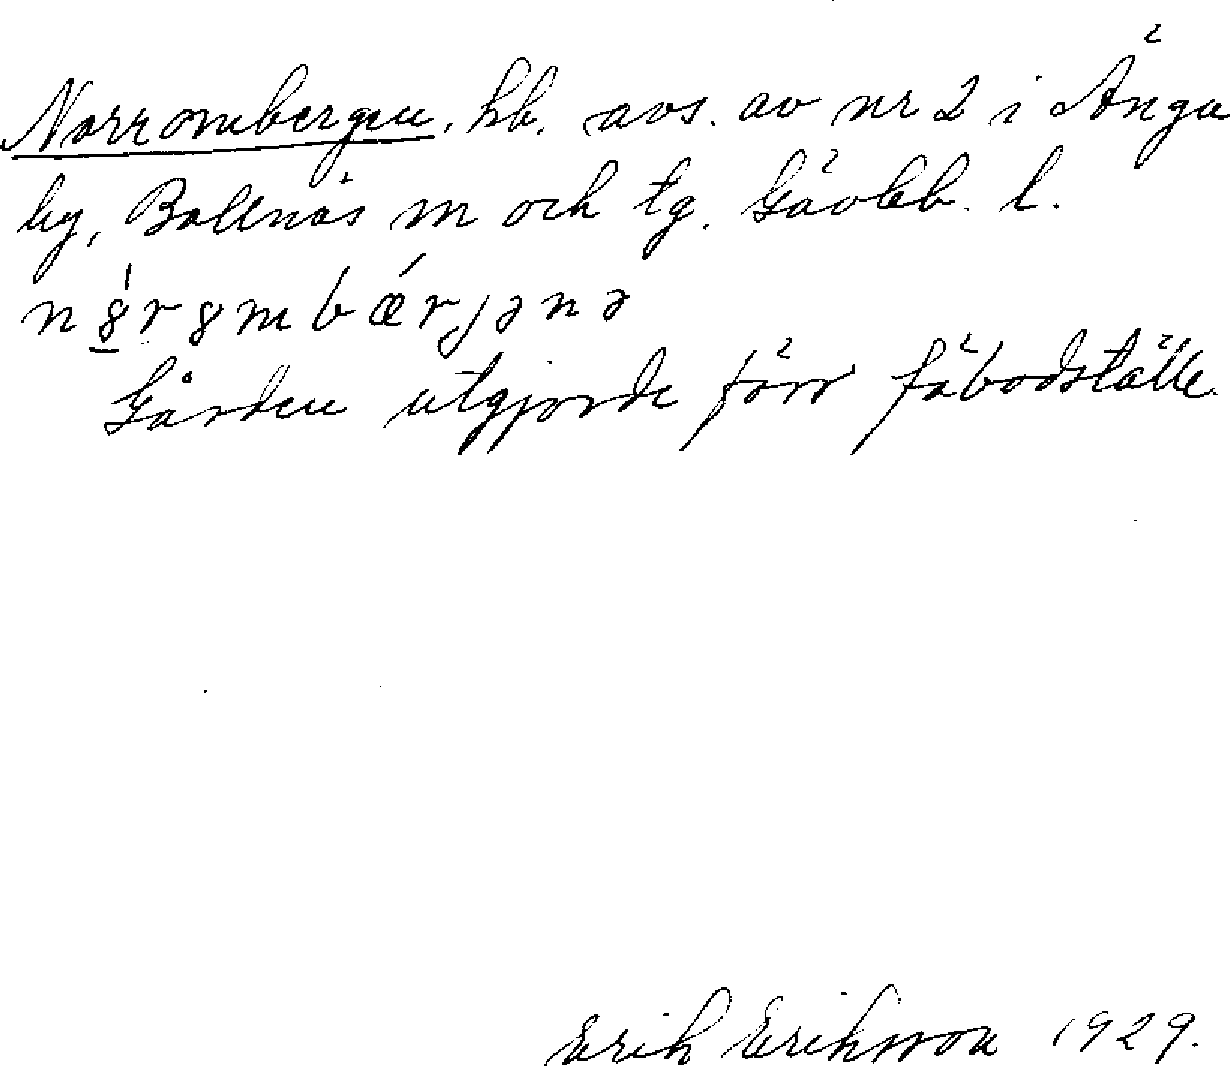 Norrombergen, hb. avs. av nr 2 i Änga
by, Bollnäs sn och tg. Gävleb. l.
n8́r8mbǽrjənə
Gården utgjorde förr fäbodställe.
Erik Eriksson 1929.